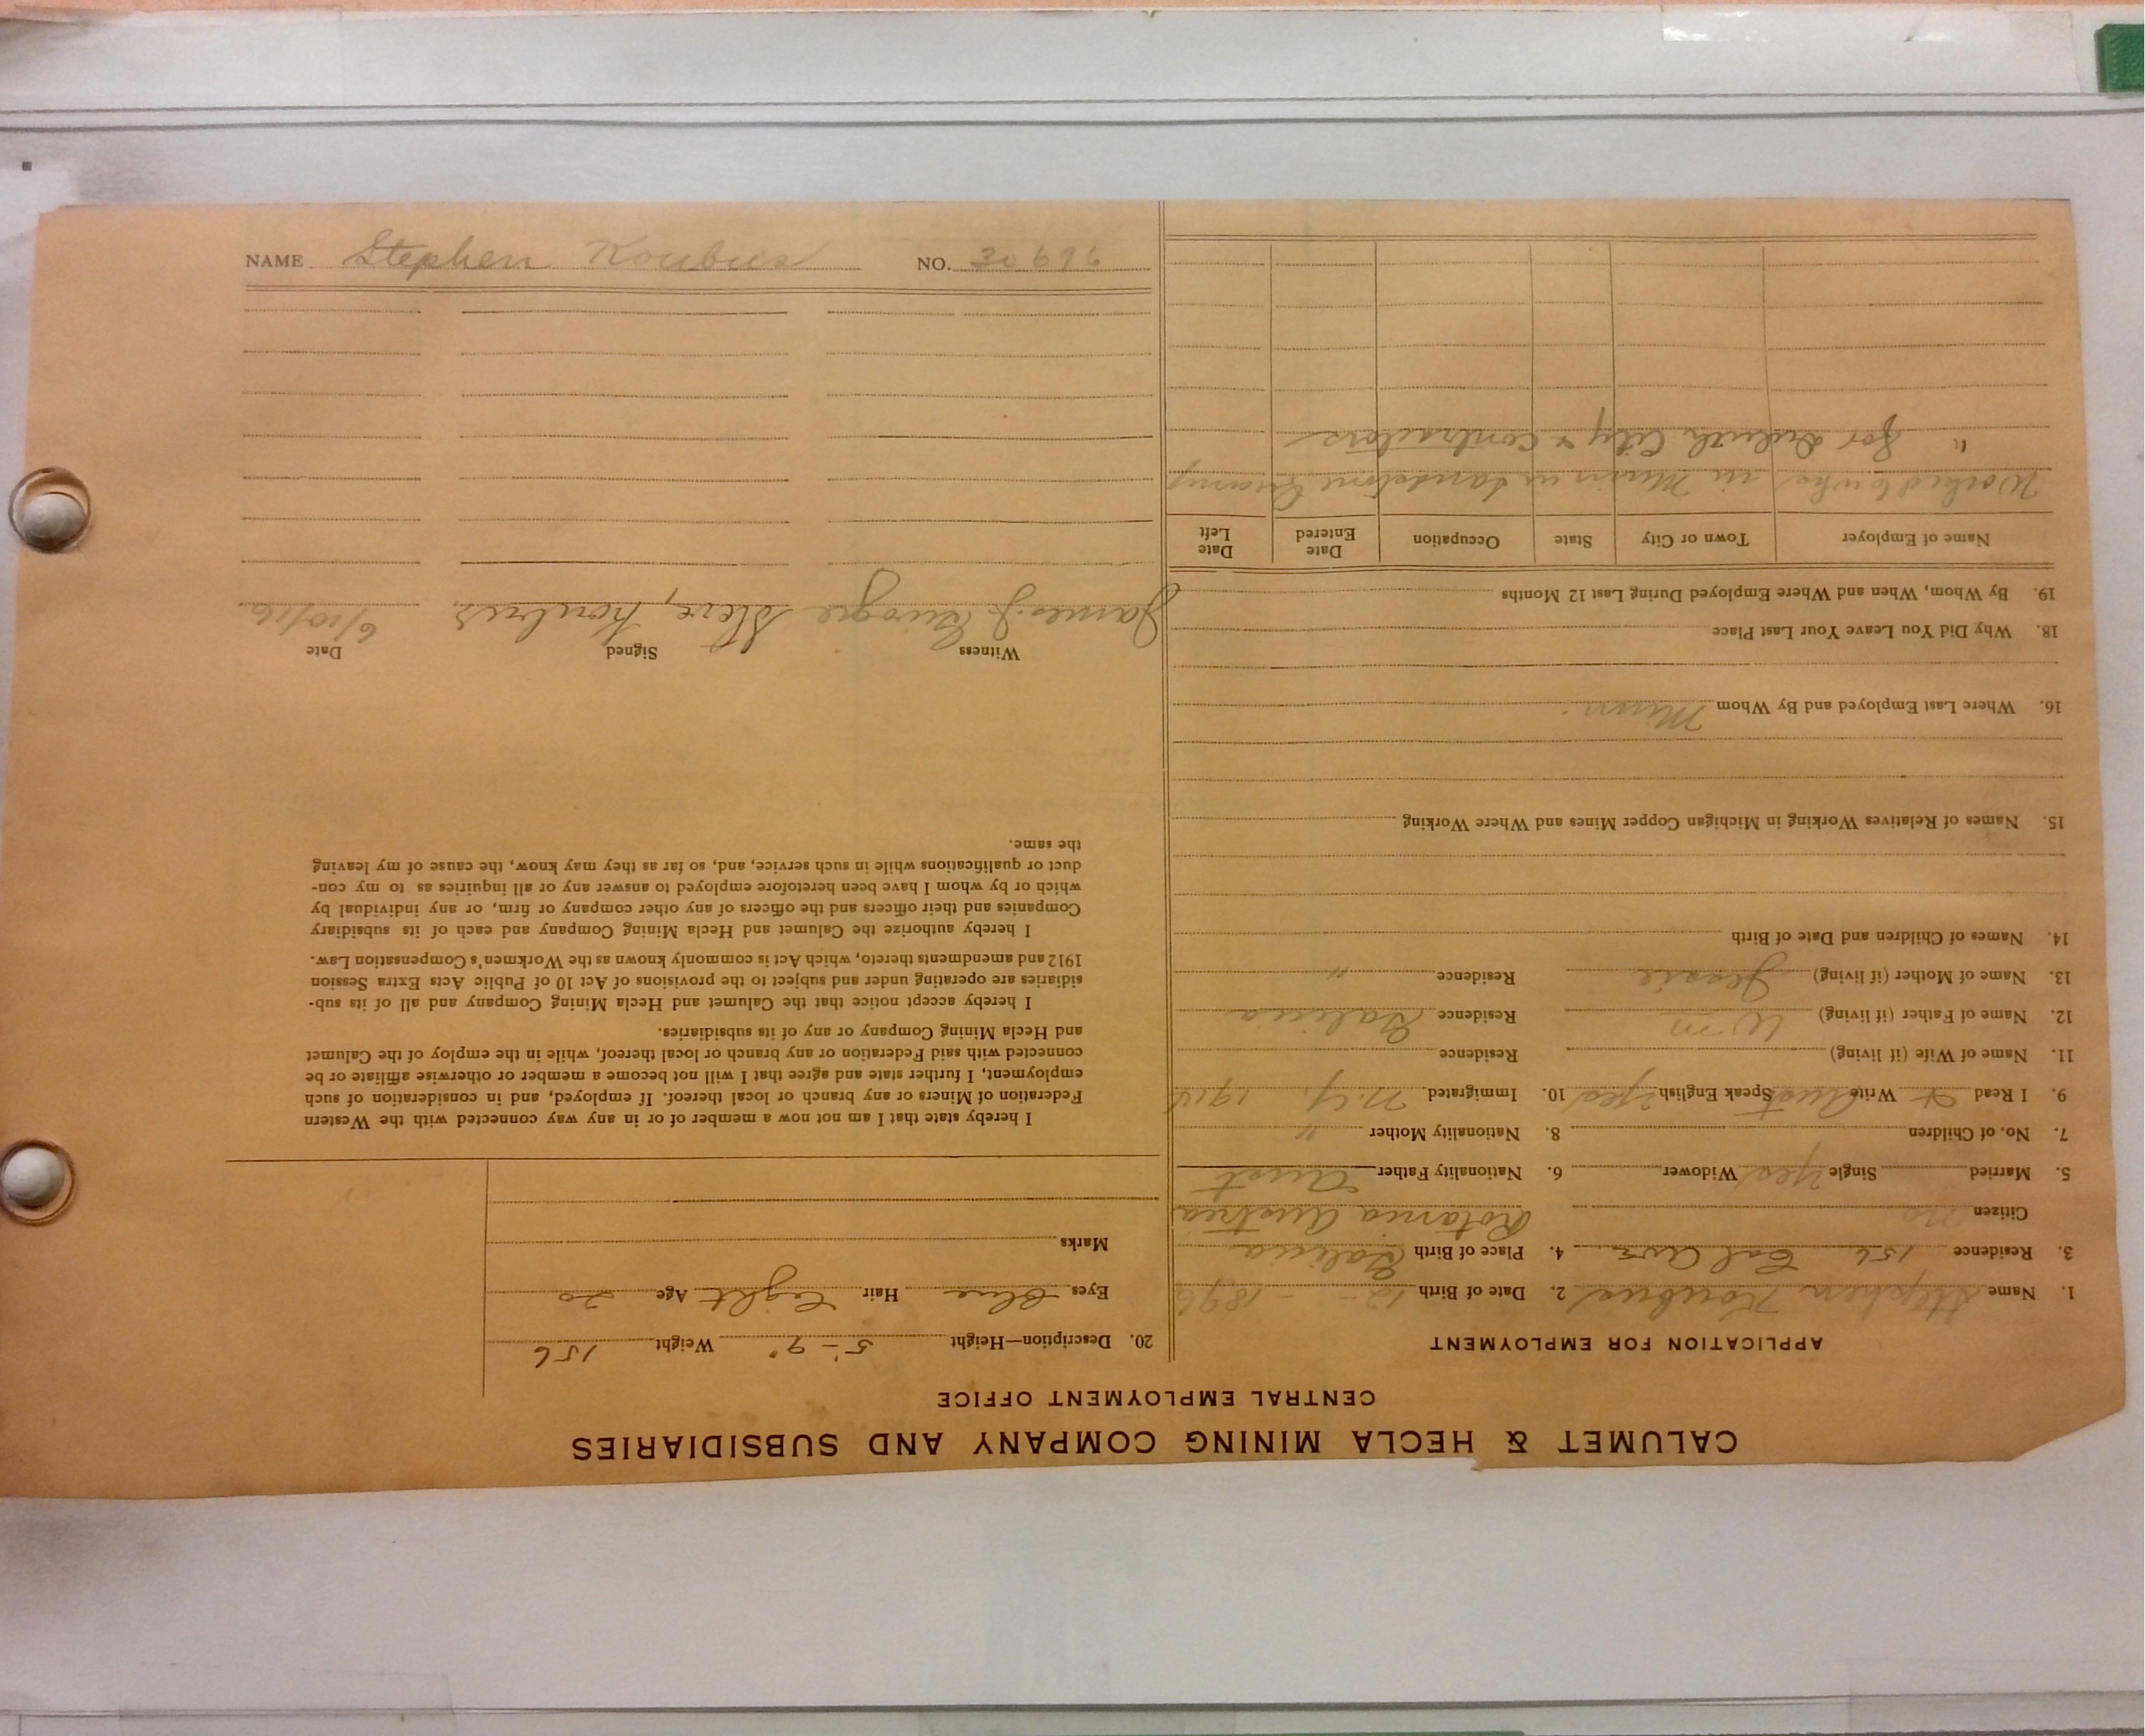 CALUMET & HECLA MINING COMPANY AND SUBSIDIARIES
CENTRAL EMPLOYMENT OFFICE
APPLICATION FOR EMPLOYMENT
1. Name Stephen Koubus 2. Date of Birth 12 - - 1896
3. Residence 156 Cal Ave 4. Place of Birth Galicia
Citizen no Austria
5. Married Single yes Widower 6. Nationality Father Aust
7. No. of Children 8. Nationality Mother "
9. I Read + Write Aust Speak English yes 10. Immigrated N.Y. 1914
11. Name of Wife (if living) Residence
12. Name of Father (if living) Wm Residence Galicia
13. Name of Mother (if living) Jessie Residence "
14. Names of Children and Date of Birth
15. Names of Relatives Working in Michigan Copper Mines and Where Working
16. Where Last Employed and By Whom Minn.
18. Why Did You Leave Your Last Place
19. By Whom, When and Where Employed During Last 12 Months
Name of Employer Town or City State Occupation Date Entered Date Left
Worked in Minn in Sandstone Quarry
" for Duluth City & Contractors
20. Description—Height 5'-9" Weight 156
Eyes Blue Hair Light Age 20
Marks
I hereby state that I am not now a member of or in any way connected with the Western
Federation of Miners or any branch or local thereof. If employed, and in consideration of such
employment, I further state and agree that I will not become a member or otherwise affiliate or be
connected with said Federation or any branch or local thereof, while in the employ of the Calumet
and Hecla Mining Company or any of its subsidiaries.
I hereby accept notice that the Calumet and Hecla Mining Company and all of its sub-
sidiaries are operating under and subject to the provisions of Act 10 of Public Acts Extra Session
1912 and amendments thereto, which Act is commonly known as the Workmen's Compensation Law.
I hereby authorize the Calumet and Hecla Mining Company and each of its subsidiary
Companies and their officers and the officers of any other company or firm, or any individual by
which or by whom I have been heretofore employed to answer any or all inquiries as to my con-
duct or qualifications while in such service, and, so far as they may know, the cause of my leaving
the same.
Witness Signed Date
James J. Steve, Koubus 6/10/16
NAME Stephen Koubus NO. 30696